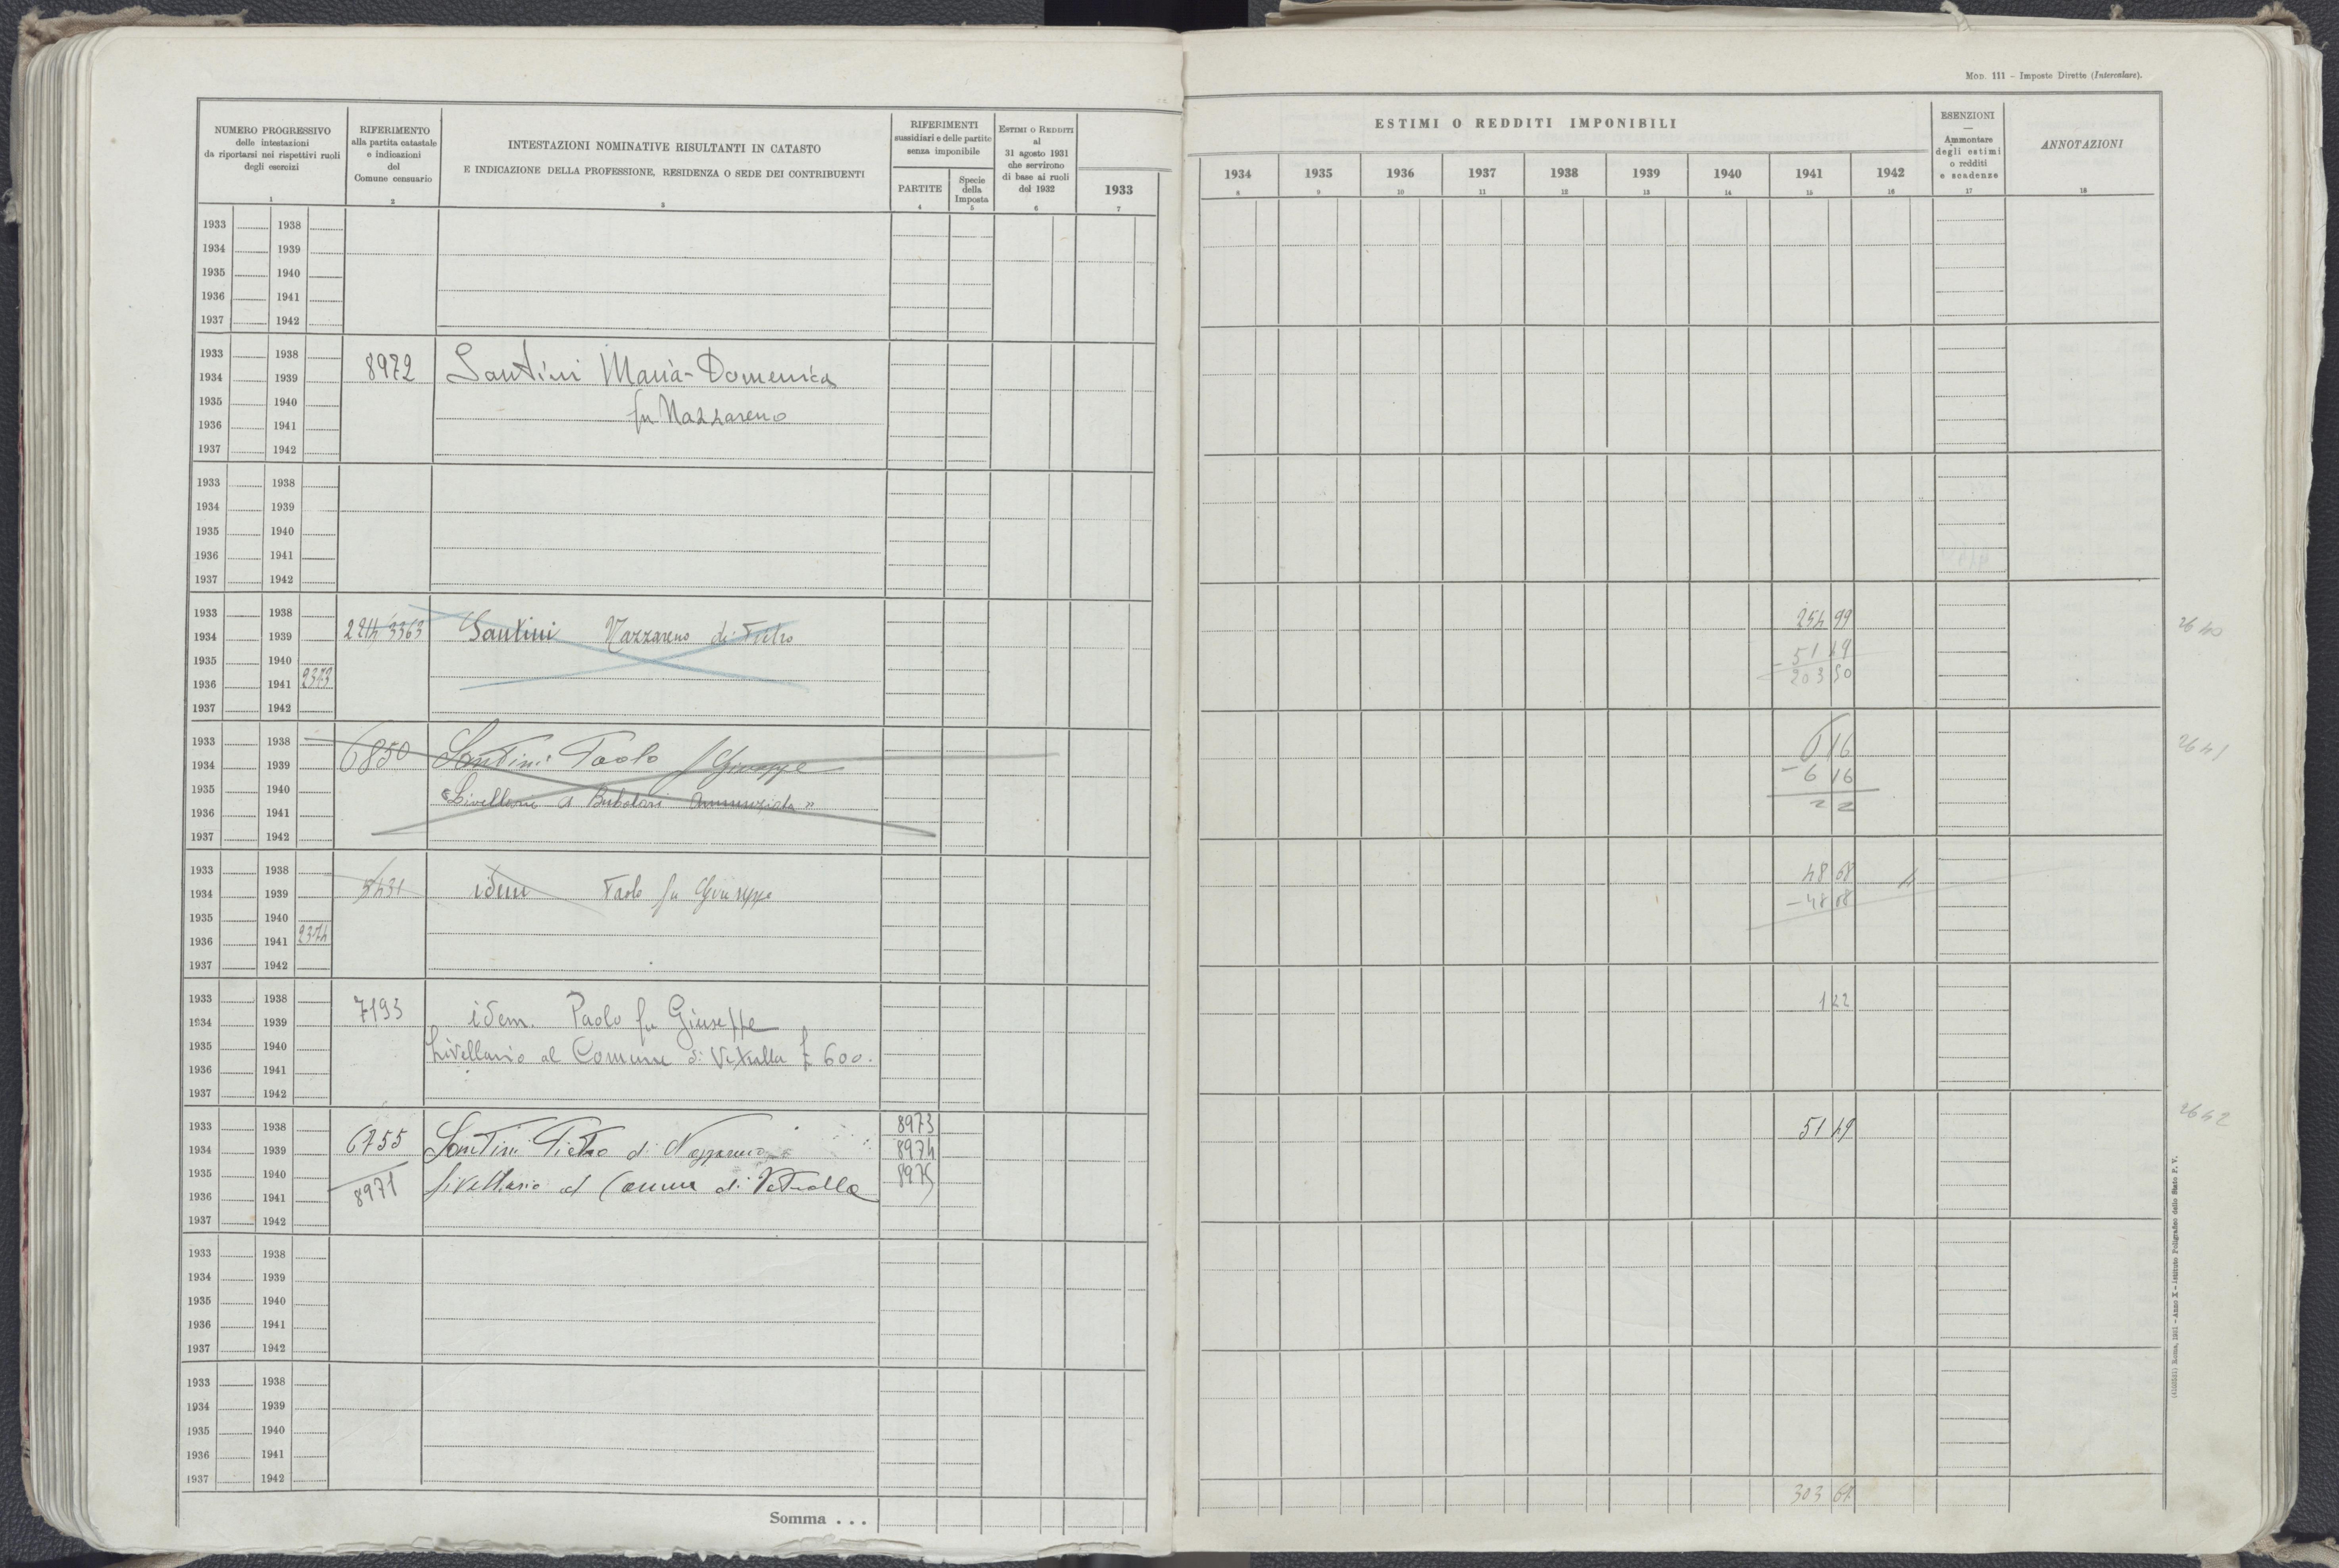 MOD. 111 - Imposte Dirette (Intercalare).
NUMERO PROGRESSIVO
delle intestazioni
da riportarsi nei rispettivi ruoli
degli esercizi
1
RIFERIMENTO
alla partita catastale
e indicazioni
del
Comune censuario
2
INTESTAZIONI NOMINATIVE RISULTANTI IN CATASTO
E INDICAZIONE DELLA PROFESSIONE, RESIDENZA O SEDE DEI CONTRIBUENTI
3
RIFERIMENTI
sussidiari e delle partite
senza imponibile
PARTITE
4
Specie
della
Imposta
5
ESTIMI O REDDITI
al
31 agosto 1931
che servirono
di base ai ruoli
del 1932
6
1933
7
ESTIMI O REDDITI IMPONIBILI
1934 1935 1936 1937 1938 1939 1940 1941 1942
8 9 10 11 12 13 14 15 16
ESENZIONI
—
Ammontare
degli estimi
o redditi
e scadenze
17
ANNOTAZIONI
18
1933 1938
1934 1939
1935 1940
1936 1941
1937 1942
1933 1938
8972 Santini Maria-Domenica
1934 1939
1935 1940
fu Nazzareno
1936 1941
1937 1942
1933 1938
1934 1939
1935 1940
1936 1941
1937 1942
1933 1938
3363 Santini Nazzareno di Pietro 254 99 2640
1934 1939
1935 1940
- 51 49
1936 1941 2373
203 50
1937 1942
1933 1938
6850 Santini Paolo f Giuseppe 6 16 2641
1934 1939
- 6 16
1935 1940
"Livellario a Bubolari Annunziata"
2 2
1936 1941
1937 1942
1933 1938
5431 idem Paolo fu Giuseppe 48 08
1934 1939
- 48 08
1935 1940
1936 1941 2374
1937 1942
1933 1938
7193 idem. Paolo fu Giuseppe 1 22
1934 1939
1935 1940
Livellario al Comune di Vetralla £ 600.
1936 1941
1937 1942
1933 1938
8973
6755 Santini Pietro di Nazzareno 8974 51 49 2642
1934 1939
1935 1940
8971 livellario al Comune di Vetralla 8975
1936 1941
1937 1942
1933 1938
1934 1939
1935 1940
1936 1941
1937 1942
1933 1938
1934 1939
1935 1940
1936 1941
1937 1942
Somma . . .
303
Roma, 1931 - Anno X - Istituto Poligrafico dello Stato P. V.